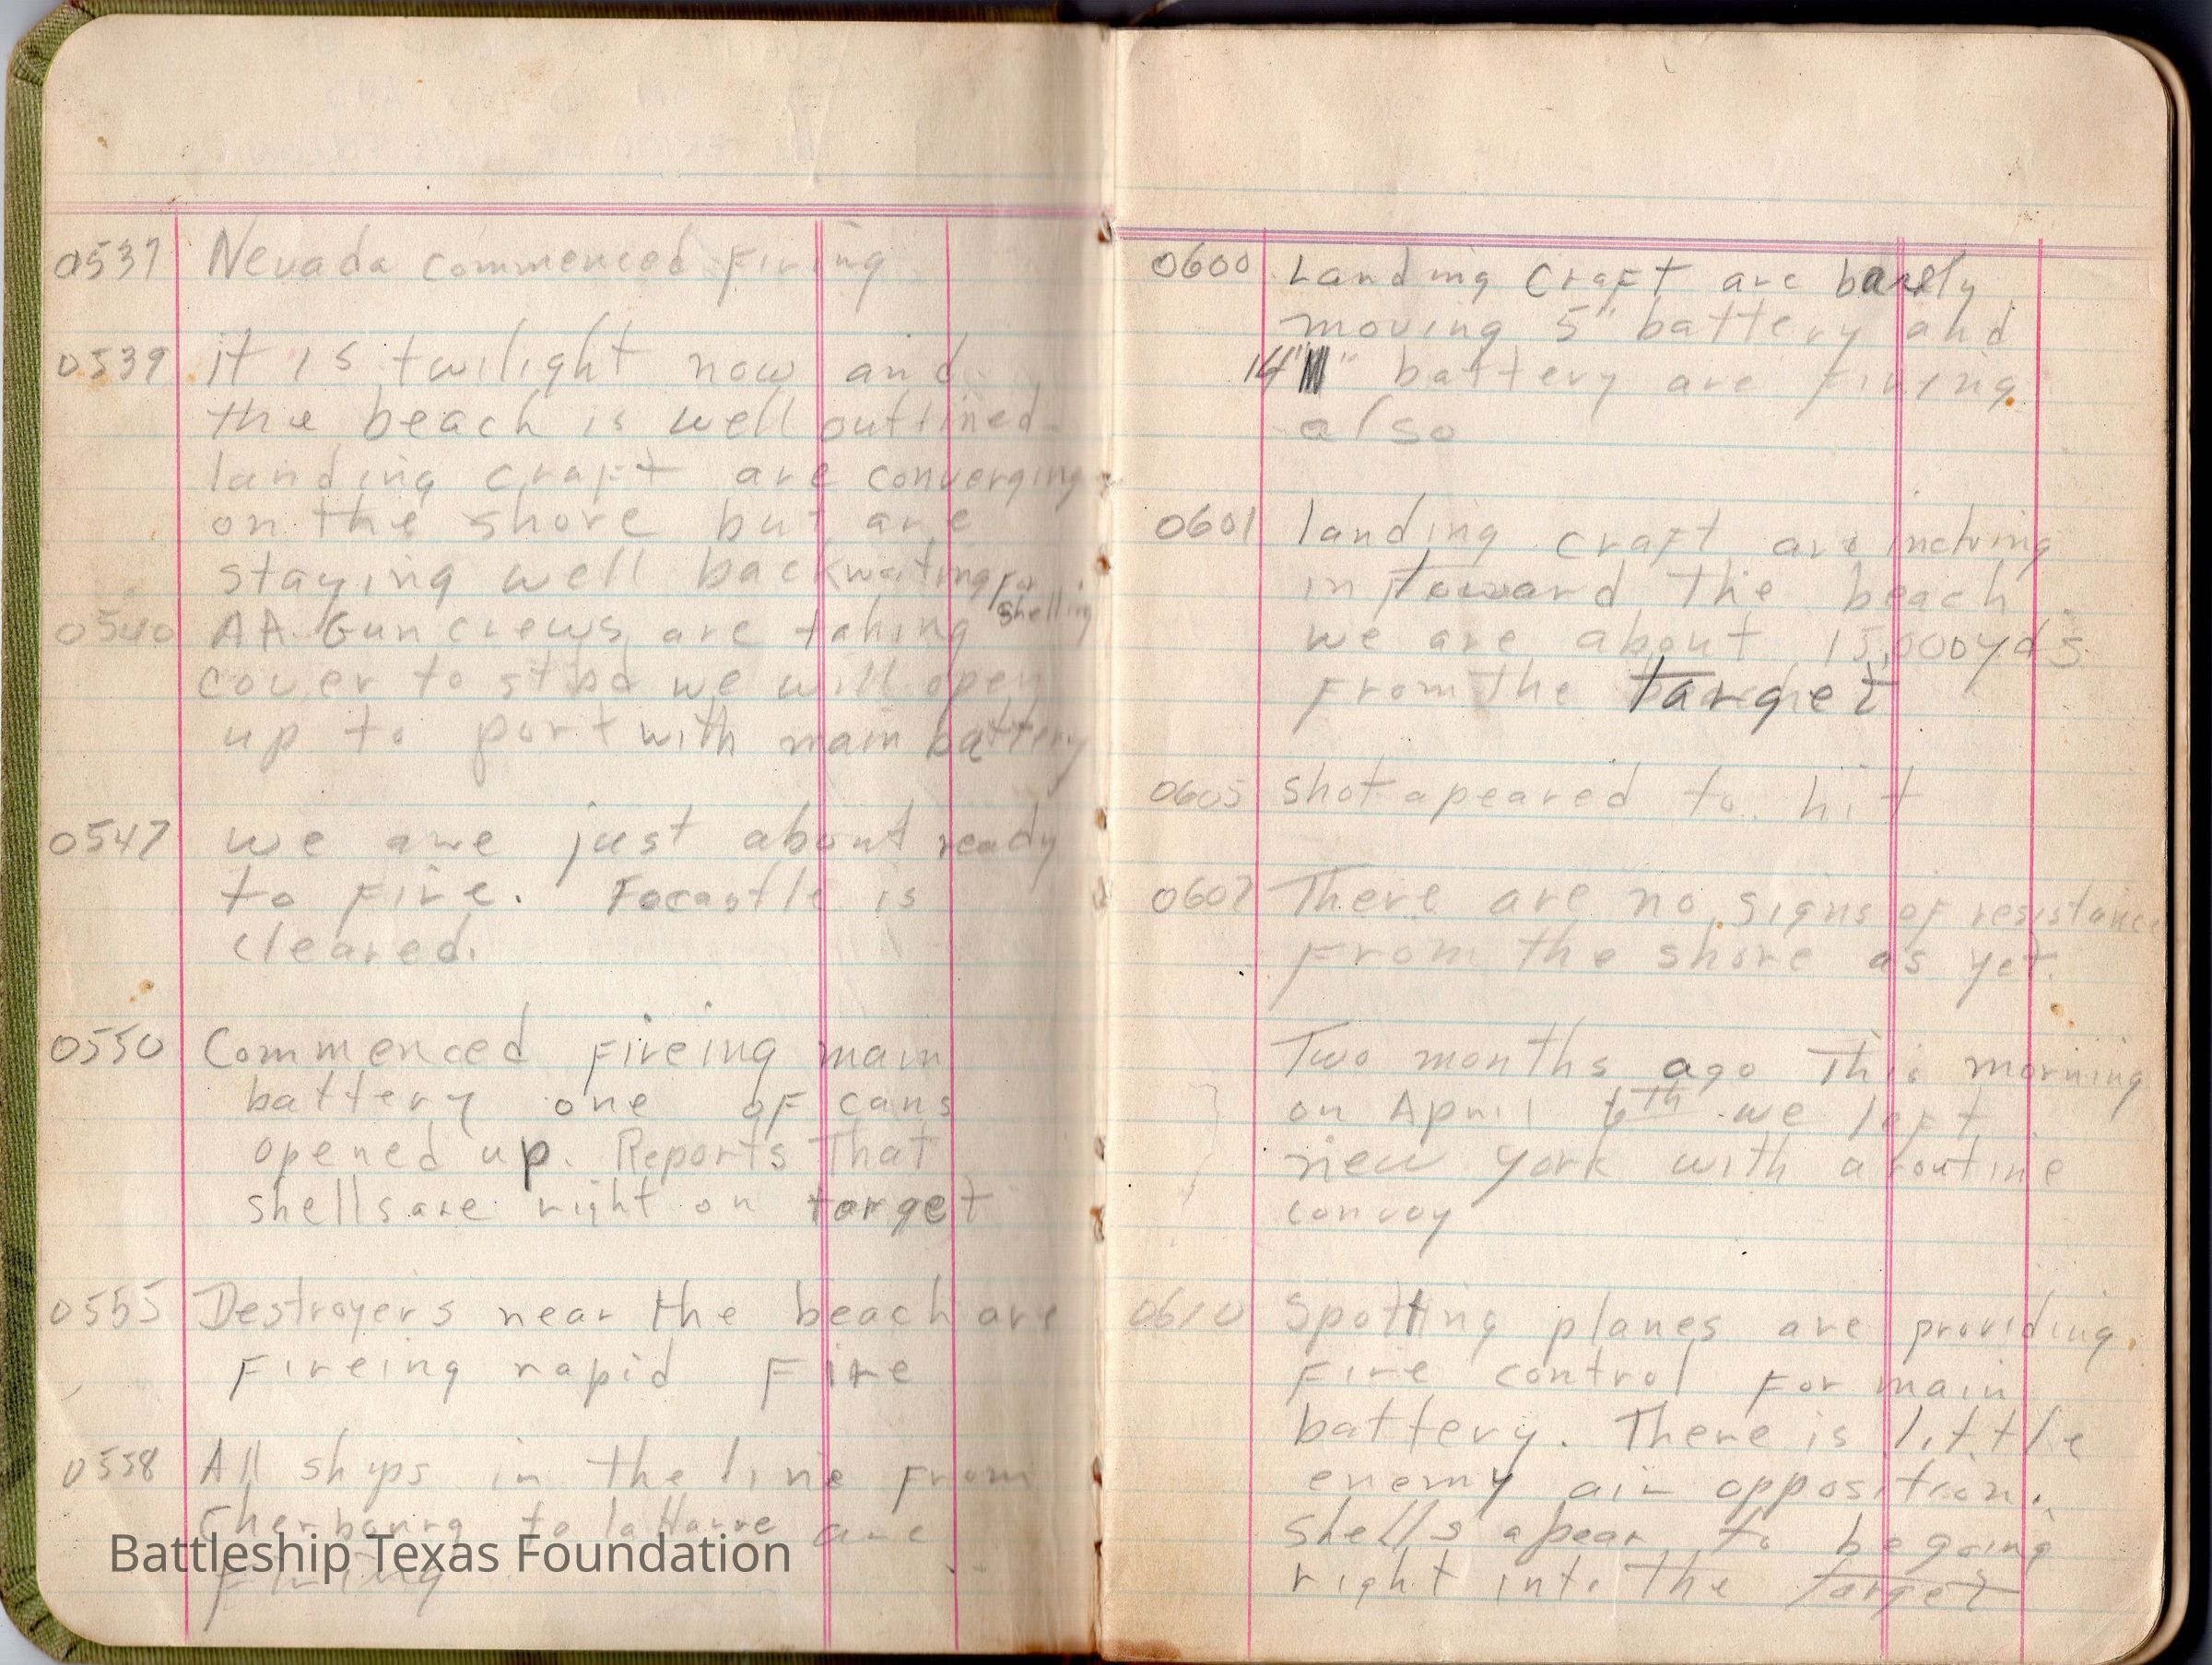 0537 Nevada commenced Firing
0539 it is twilight now and
the beach is well outlined
landing craft are converging
on the shore but are
staying well back waiting for
shelling
0540 AA Gun crews are taking
cover to stbd we will open
up to port with main battery
0547 we are just about ready
to Fire. Focastle is
cleared.
0550 Commenced Fireing main
battery one of cans
opened up. Reports That
shells are right on target
0555 Destroyers near the beach are
Fireing rapid Fire
0558 All ships in the line From
Cherbourg to la Harve are
Firing
Battleship Texas Foundation
0600 Landing craft are barely
moving 5" battery and
14" battery are Firing
also
0601 landing craft are inching
in toward the beach
we are about 15,000 yds
From the target
0605 shot apeared to hit
0607 There are no signs of resistance
From the shore as yet.
Two months ago This morning
on April 6th we left
new york with a routine
convoy
0610 Spotting planes are providing
Fire control For main
battery. There is little
enemy air opposition.
Shells apear to be going
right into the target